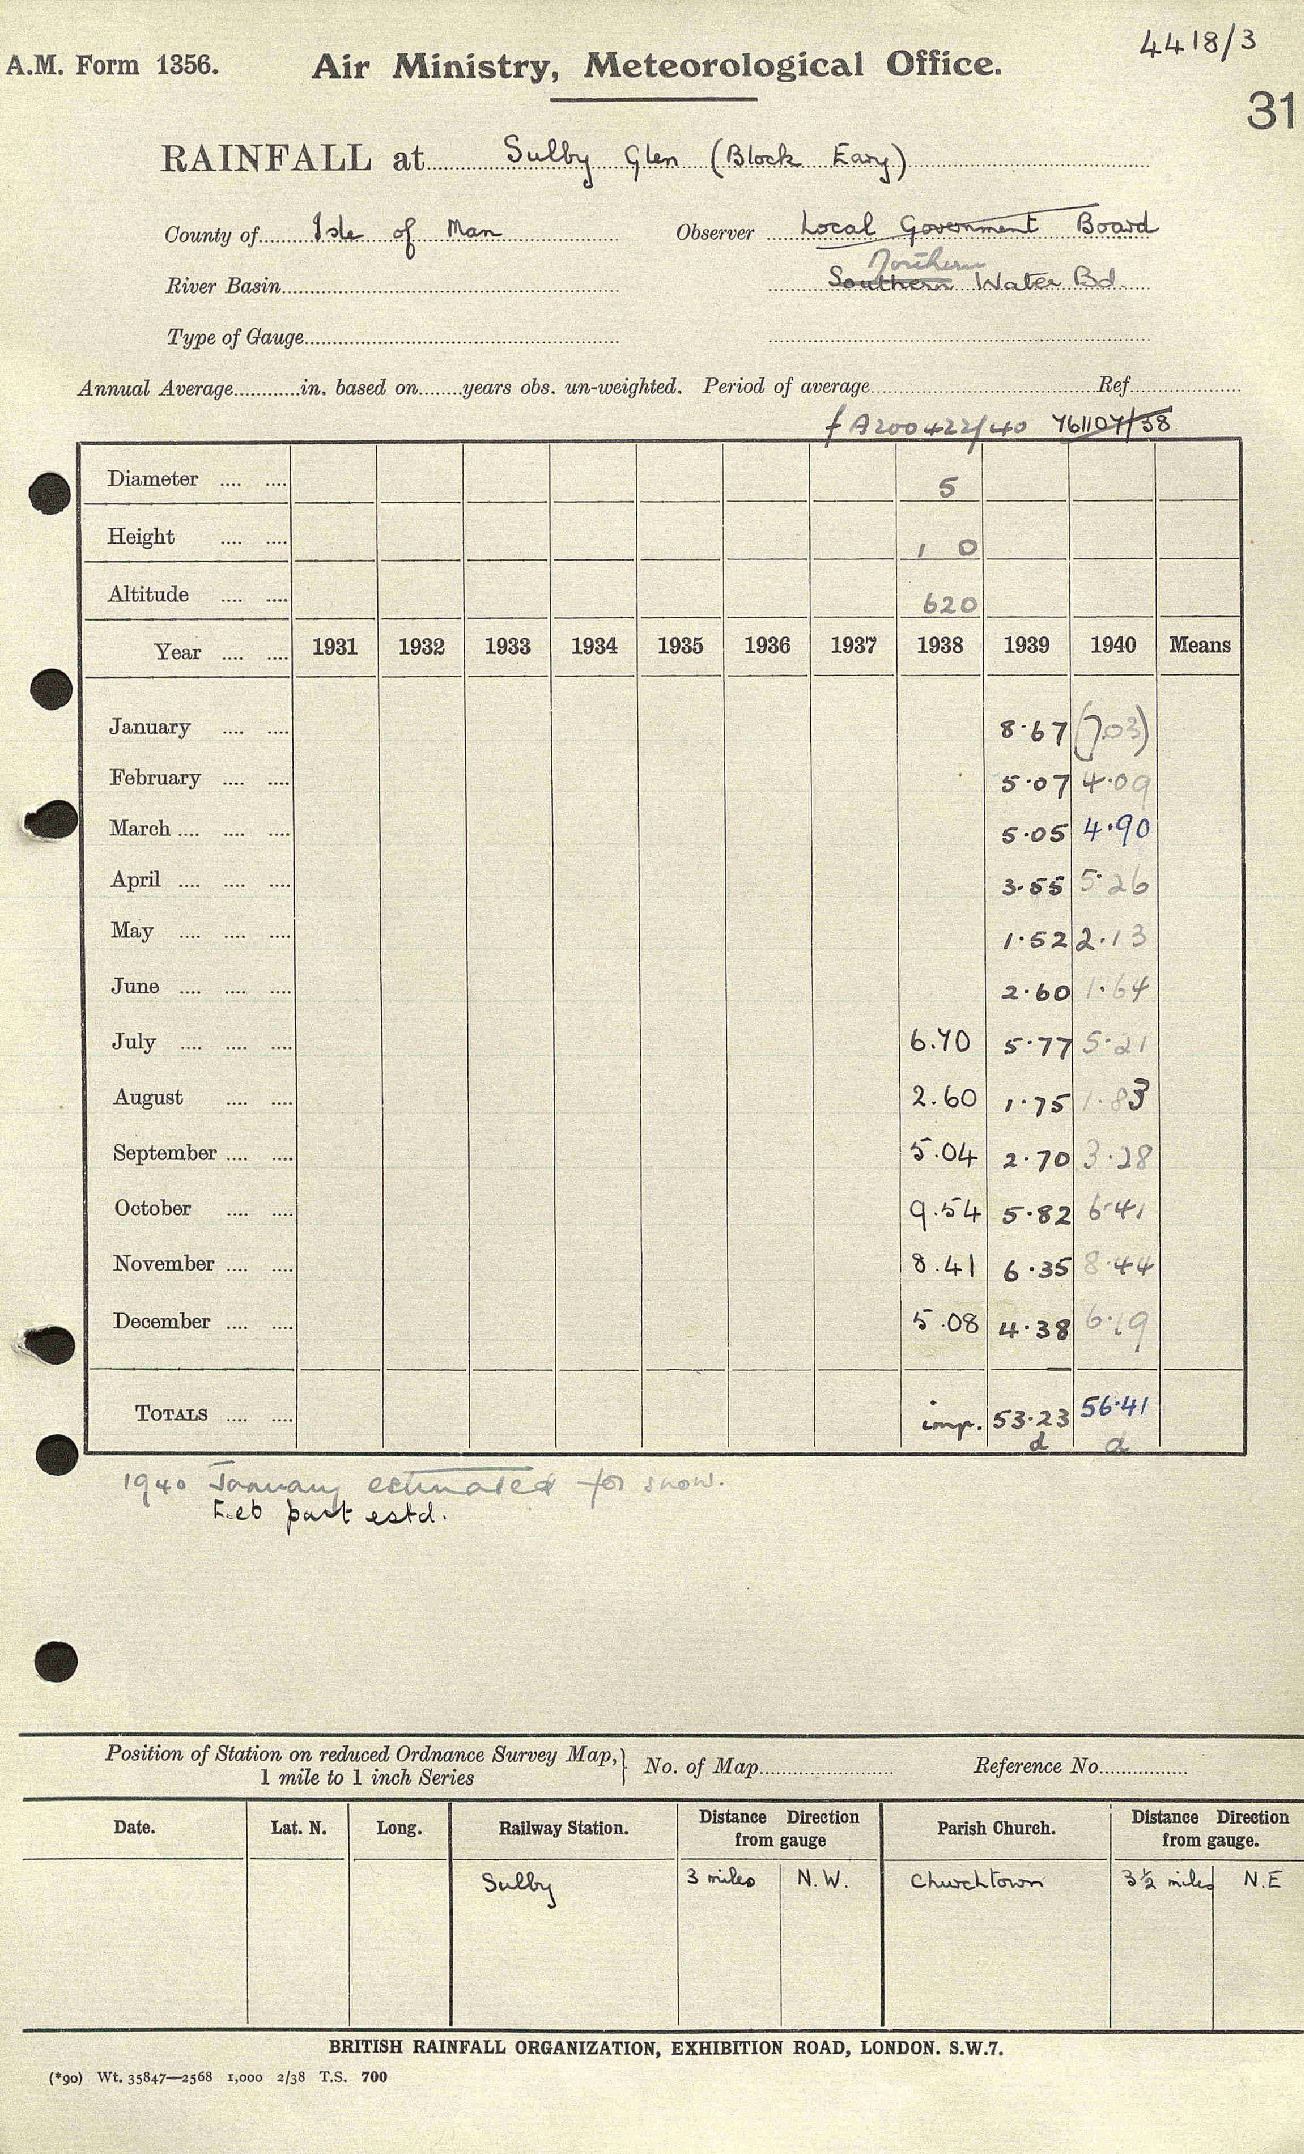 4418/3
A.M. Form 1356. Air Ministry, Meteorological Office.
31
RAINFALL at Sulby Glen (Block Eary)
County of Isle of Man Observer Local Government Board
River Basin Northern
Southern Water Bd.
Type of Gauge
Annual Average in. based on years obs. un-weighted. Period of average Ref
A200422/40 761107/38
Diameter .... .... 5
Height .... .... 1 0
Altitude .... .... 620
Year .... .... 1931 1932 1933 1934 1935 1936 1937 1938 1939 1940 Means
January .... .... 8.67 (7.03)
February .... .... 5.07 4.09
March .... .... .... 5.05 4.90
April .... .... .... 3.55 5.26
May .... .... .... 1.52 2.13
June .... .... .... 2.60 1.64
July .... .... .... 6.70 5.77 5.21
August .... .... 2.60 1.75 1.83
September .... .... 5.04 2.70 3.28
October .... .... 9.54 5.82 6.41
November .... .... 8.41 6.35 8.44
December .... .... 5.08 4.38 6.19
TOTALS .... .... imp. 53.23 56.41
d d
1940 January estimated for snow.
Feb part estd.
Position of Station on reduced Ordnance Survey Map, No. of Map Reference No.
1 mile to 1 inch Series
Date. Lat. N. Long. Railway Station. Distance Direction from gauge Parish Church. Distance Direction from gauge.
Sulby 3 miles N.W. Churchtown 3½ miles N.E
BRITISH RAINFALL ORGANIZATION, EXHIBITION ROAD, LONDON. S.W.7.
(*90) Wt. 35847—2568 1,000 2/38 T.S. 700